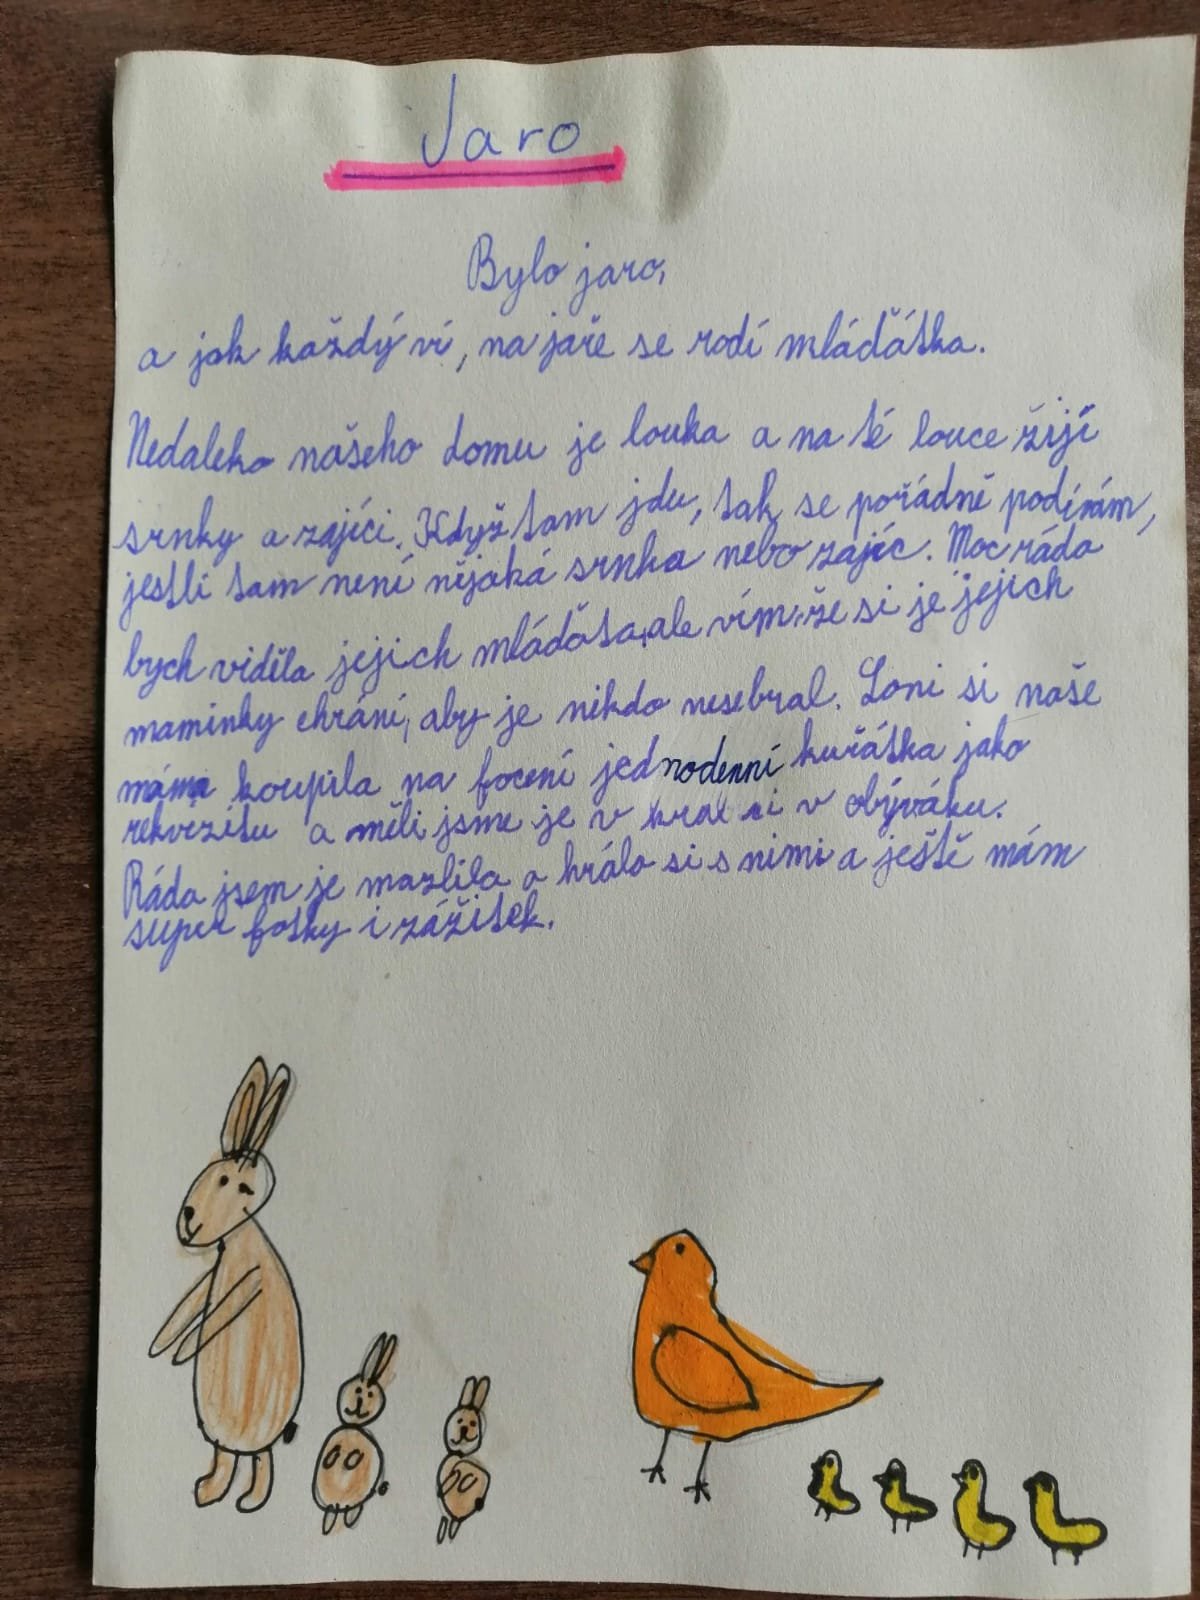 Jaro
Bylo jaro,
a jak každý ví, na jaře se rodí mláďátka.
Nedaleko našeho domu je louka a na té louce žijí
srnky a zajíci. Když tam jdu, tak se pořádně podívám,
jestli tam není nějaká srnka nebo zajíc. Moc ráda
bych viděla jejich mláďata, ale vím, že si je jejich
maminky chrání, aby je nikdo nesebral. Loni si naše
máma koupila na focení jednodenní kuřátka jako
rekvizitu a měli jsme je v v obýváku.
Ráda jsem je mazlila a hrála si s nimi a ještě mám
super fotky i zážitek.